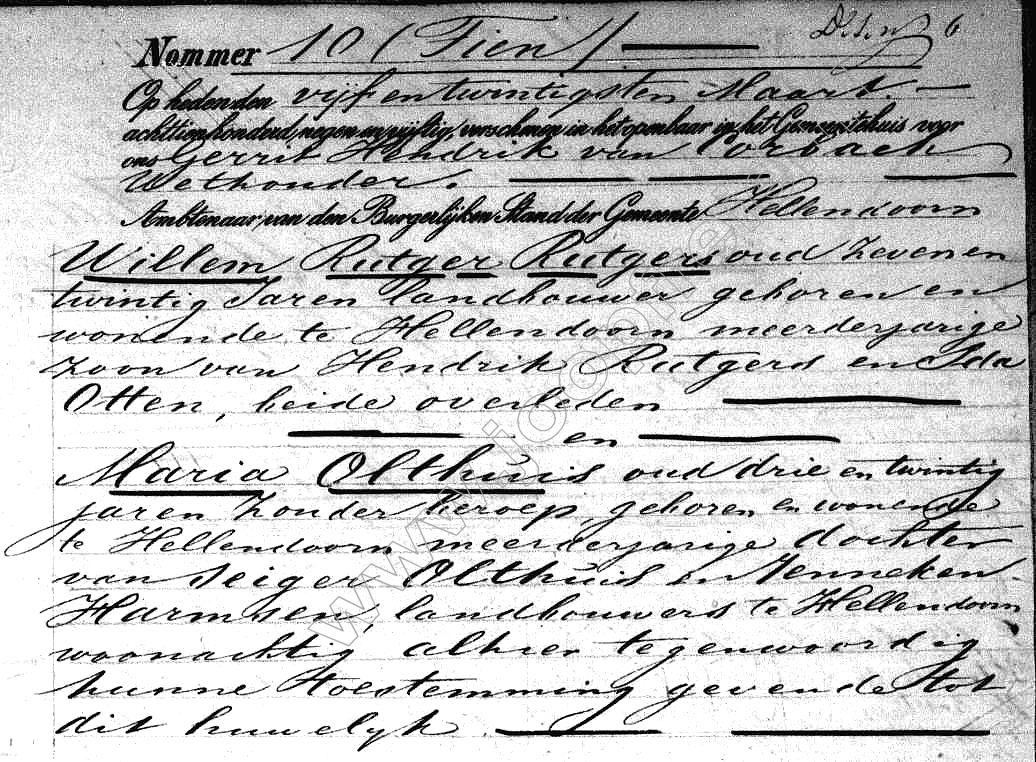 Nommer 10 (Tien)
6
Op heden den vijf en twintigsten Maart
achttien honderd negen en vijftig, verschenen in het openbaar in het Gemeentehuis voor
ons Gerrit Hendrik van Corbach
Wethouder.
Ambtenaar van den Burgerlijken Stand der Gemeente Hellendoorn
Willem Rutger Rutgers oud zeven en
twintig Jaren landbouwer geboren en
wonende te Hellendoorn meerderjarige
zoon van Hendrik Rutgers en Ida
Otten, beide overleden
en
Maria Olthuis oud drie en twintig
jaren zonder beroep, geboren en wonende
te Hellendoorn meerderjarige dochter
van Seiger Olthuis en Jenneken
Harmsen, landbouwers te Hellendoorn
woonachtig alhier tegenwoordig
hunne toestemming gevende tot
dit huwelyk